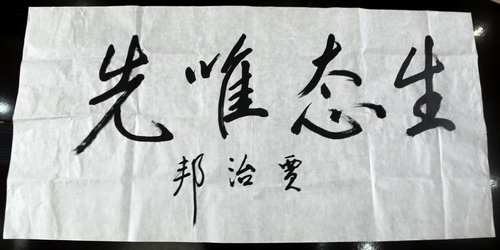 生态唯先
贾治邦